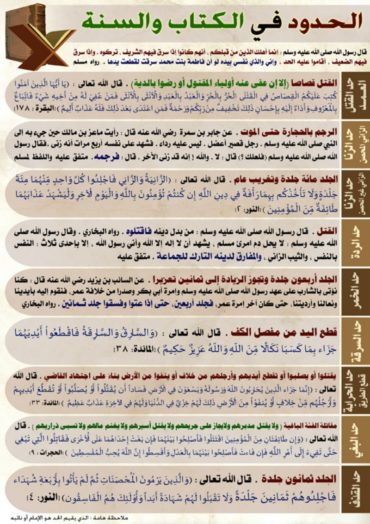 الحدود في الكتاب والسنة
قال رسول الله صلى الله عليه وسلم : إنما أهلك الذين من قبلكم ، أنهم كانوا إذا سرق فيهم الشريف ، تركوه ، وإذا سرق
فيهم الضعيف ، أقاموا عليه الحد ، وايم والذي نفسي بيده لو أن فاطمة بنت محمد سرقت لقطعت يدها ، رواه مسلم
حد القتل
القتل قصاصا (إلا إن عفى عنه أولياء المقتول أو رضوا بالدية) . قال الله تعالى : (يَا أَيُّهَا الَّذِينَ آمَنُوا
كُتِبَ عَلَيْكُمُ الْقِصَاصُ فِي الْقَتْلَى الْحُرُّ بِالْحُرِّ وَالْعَبْدُ بِالْعَبْدِ وَالْأُنْثَى بِالْأُنْثَى فَمَنْ عُفِيَ لَهُ مِنْ أَخِيهِ شَيْءٌ فَاتِّبَاعٌ
بِالْمَعْرُوفِ وَأَدَاءٌ إِلَيْهِ بِإِحْسَانٍ ذَلِكَ تَخْفِيفٌ مِنْ رَبِّكُمْ وَرَحْمَةٌ فَمَنِ اعْتَدَى بَعْدَ ذَلِكَ فَلَهُ عَذَابٌ أَلِيمٌ) البقرة : ١٧٨
حد الزنا
الزاني المحصن
الرجم بالحجارة حتى الموت . عن جابر بن سمرة رضي الله عنه قال : رأيت ماعز بن مالك حين جيء به الى
النبي صلى الله عليه وسلم ، رجل قصير أعضل ، ليس عليه رداء ، فشهد على نفسه أربع مرات أنه زنى ، فقال رسول
الله صلى الله عليه وسلم (فلعلك ؟) قال : لا ، والله ! إنه قد زنى الآخر . قال : فرجمه . متفق عليه واللفظ لمسلم
حد الزنا
الزاني غير المحصن
الجلد مائة جلدة وتغريب عام . قال الله تعالى : (الزَّانِيَةُ وَالزَّانِي فَاجْلِدُوا كُلَّ وَاحِدٍ مِنْهُمَا مِئَةَ
جَلْدَةٍ وَلَا تَأْخُذْكُم بِهِمَا رَأْفَةٌ فِي دِينِ اللَّهِ إِن كُنتُمْ تُؤْمِنُونَ بِاللَّهِ وَالْيَوْمِ الْآخِرِ وَلْيَشْهَدْ عَذَابَهُمَا
طَائِفَةٌ مِّنَ الْمُؤْمِنِينَ) النور : ٢
حد الردة
القتل . قال رسول الله صلى الله عليه وسلم : من بدل دينه فاقتلوه . رواه البخاري . وقال رسول الله صلى
الله عليه وسلم : لا يحل دم امرئ مسلم ، يشهد أن لا إله إلا الله وأني رسول الله ، إلا بإحدى ثلاث : النفس
بالنفس ، والثيب الزاني ، والمفارق لدينه التارك للجماعة . متفق عليه
حد الخمر
الجلد أربعون جلدة وتجوز الزيادة إلى ثمانين تعزيرا . عن السائب بن يزيد رضي الله عنه قال : كنا
نؤتى بالشارب على عهد رسول الله صلى الله عليه وسلم وإمرة أبي بكر وصدرا من خلافة عمر ، فنقوم إليه بأيدينا
ونعالنا وأرديتنا ، حتى كان آخر إمرة عمر ، فجلد أربعين ، حتى إذا عتوا وفسقوا جلد ثمانين . رواه البخاري
حد السرقة
قطع اليد من مفصل الكف . قال الله تعالى : (وَالسَّارِقُ وَالسَّارِقَةُ فَاقْطَعُوا أَيْدِيَهُمَا
جَزَاءً بِمَا كَسَبَا نَكَالًا مِّنَ اللَّهِ وَاللَّهُ عَزِيزٌ حَكِيمٌ) المائدة : ٣٨
حد الحرابة
قطع الطريق
يقتلوا أو يصلبوا أو تقطع أيديهم وأرجلهم من خلاف أو ينفوا من الأرض بناء على اجتهاد القاضي . قال الله
تعالى : (إِنَّمَا جَزَاءُ الَّذِينَ يُحَارِبُونَ اللَّهَ وَرَسُولَهُ وَيَسْعَوْنَ فِي الْأَرْضِ فَسَادًا أَن يُقَتَّلُوا أَوْ يُصَلَّبُوا أَوْ تُقَطَّعَ أَيْدِيهِمْ
وَأَرْجُلُهُم مِّنْ خِلَافٍ أَوْ يُنفَوْا مِنَ الْأَرْضِ ذَلِكَ لَهُمْ خِزْيٌ فِي الدُّنْيَا وَلَهُمْ فِي الْآخِرَةِ عَذَابٌ عَظِيمٌ) المائدة : ٣٣
حد البغي
مقاتلة الفئة الباغية (ولا يقتل مدبرهم ولايجاز على جريحهم ولا يقتل أسيرهم ولا يغنم مالهم ولا تسبى ذراريهم) . قال
الله تعالى : (وَإِن طَائِفَتَانِ مِنَ الْمُؤْمِنِينَ اقْتَتَلُوا فَأَصْلِحُوا بَيْنَهُمَا فَإِن بَغَتْ إِحْدَاهُمَا عَلَى الْأُخْرَى فَقَاتِلُوا الَّتِي تَبْغِي
حَتَّى تَفِيءَ إِلَى أَمْرِ اللَّهِ فَإِن فَاءَتْ فَأَصْلِحُوا بَيْنَهُمَا بِالْعَدْلِ وَأَقْسِطُوا إِنَّ اللَّهَ يُحِبُّ الْمُقْسِطِينَ) الحجرات : ٩
حد القذف
الجلد ثمانون جلدة . قال الله تعالى : (وَالَّذِينَ يَرْمُونَ الْمُحْصَنَاتِ ثُمَّ لَمْ يَأْتُوا بِأَرْبَعَةِ شُهَدَاءَ
فَاجْلِدُوهُمْ ثَمَانِينَ جَلْدَةً وَلَا تَقْبَلُوا لَهُمْ شَهَادَةً أَبَدًا وَأُولَئِكَ هُمُ الْفَاسِقُونَ) النور : ٤
ملاحظة هامة : الذي يقيم الحد هو الإمام أو نائبه